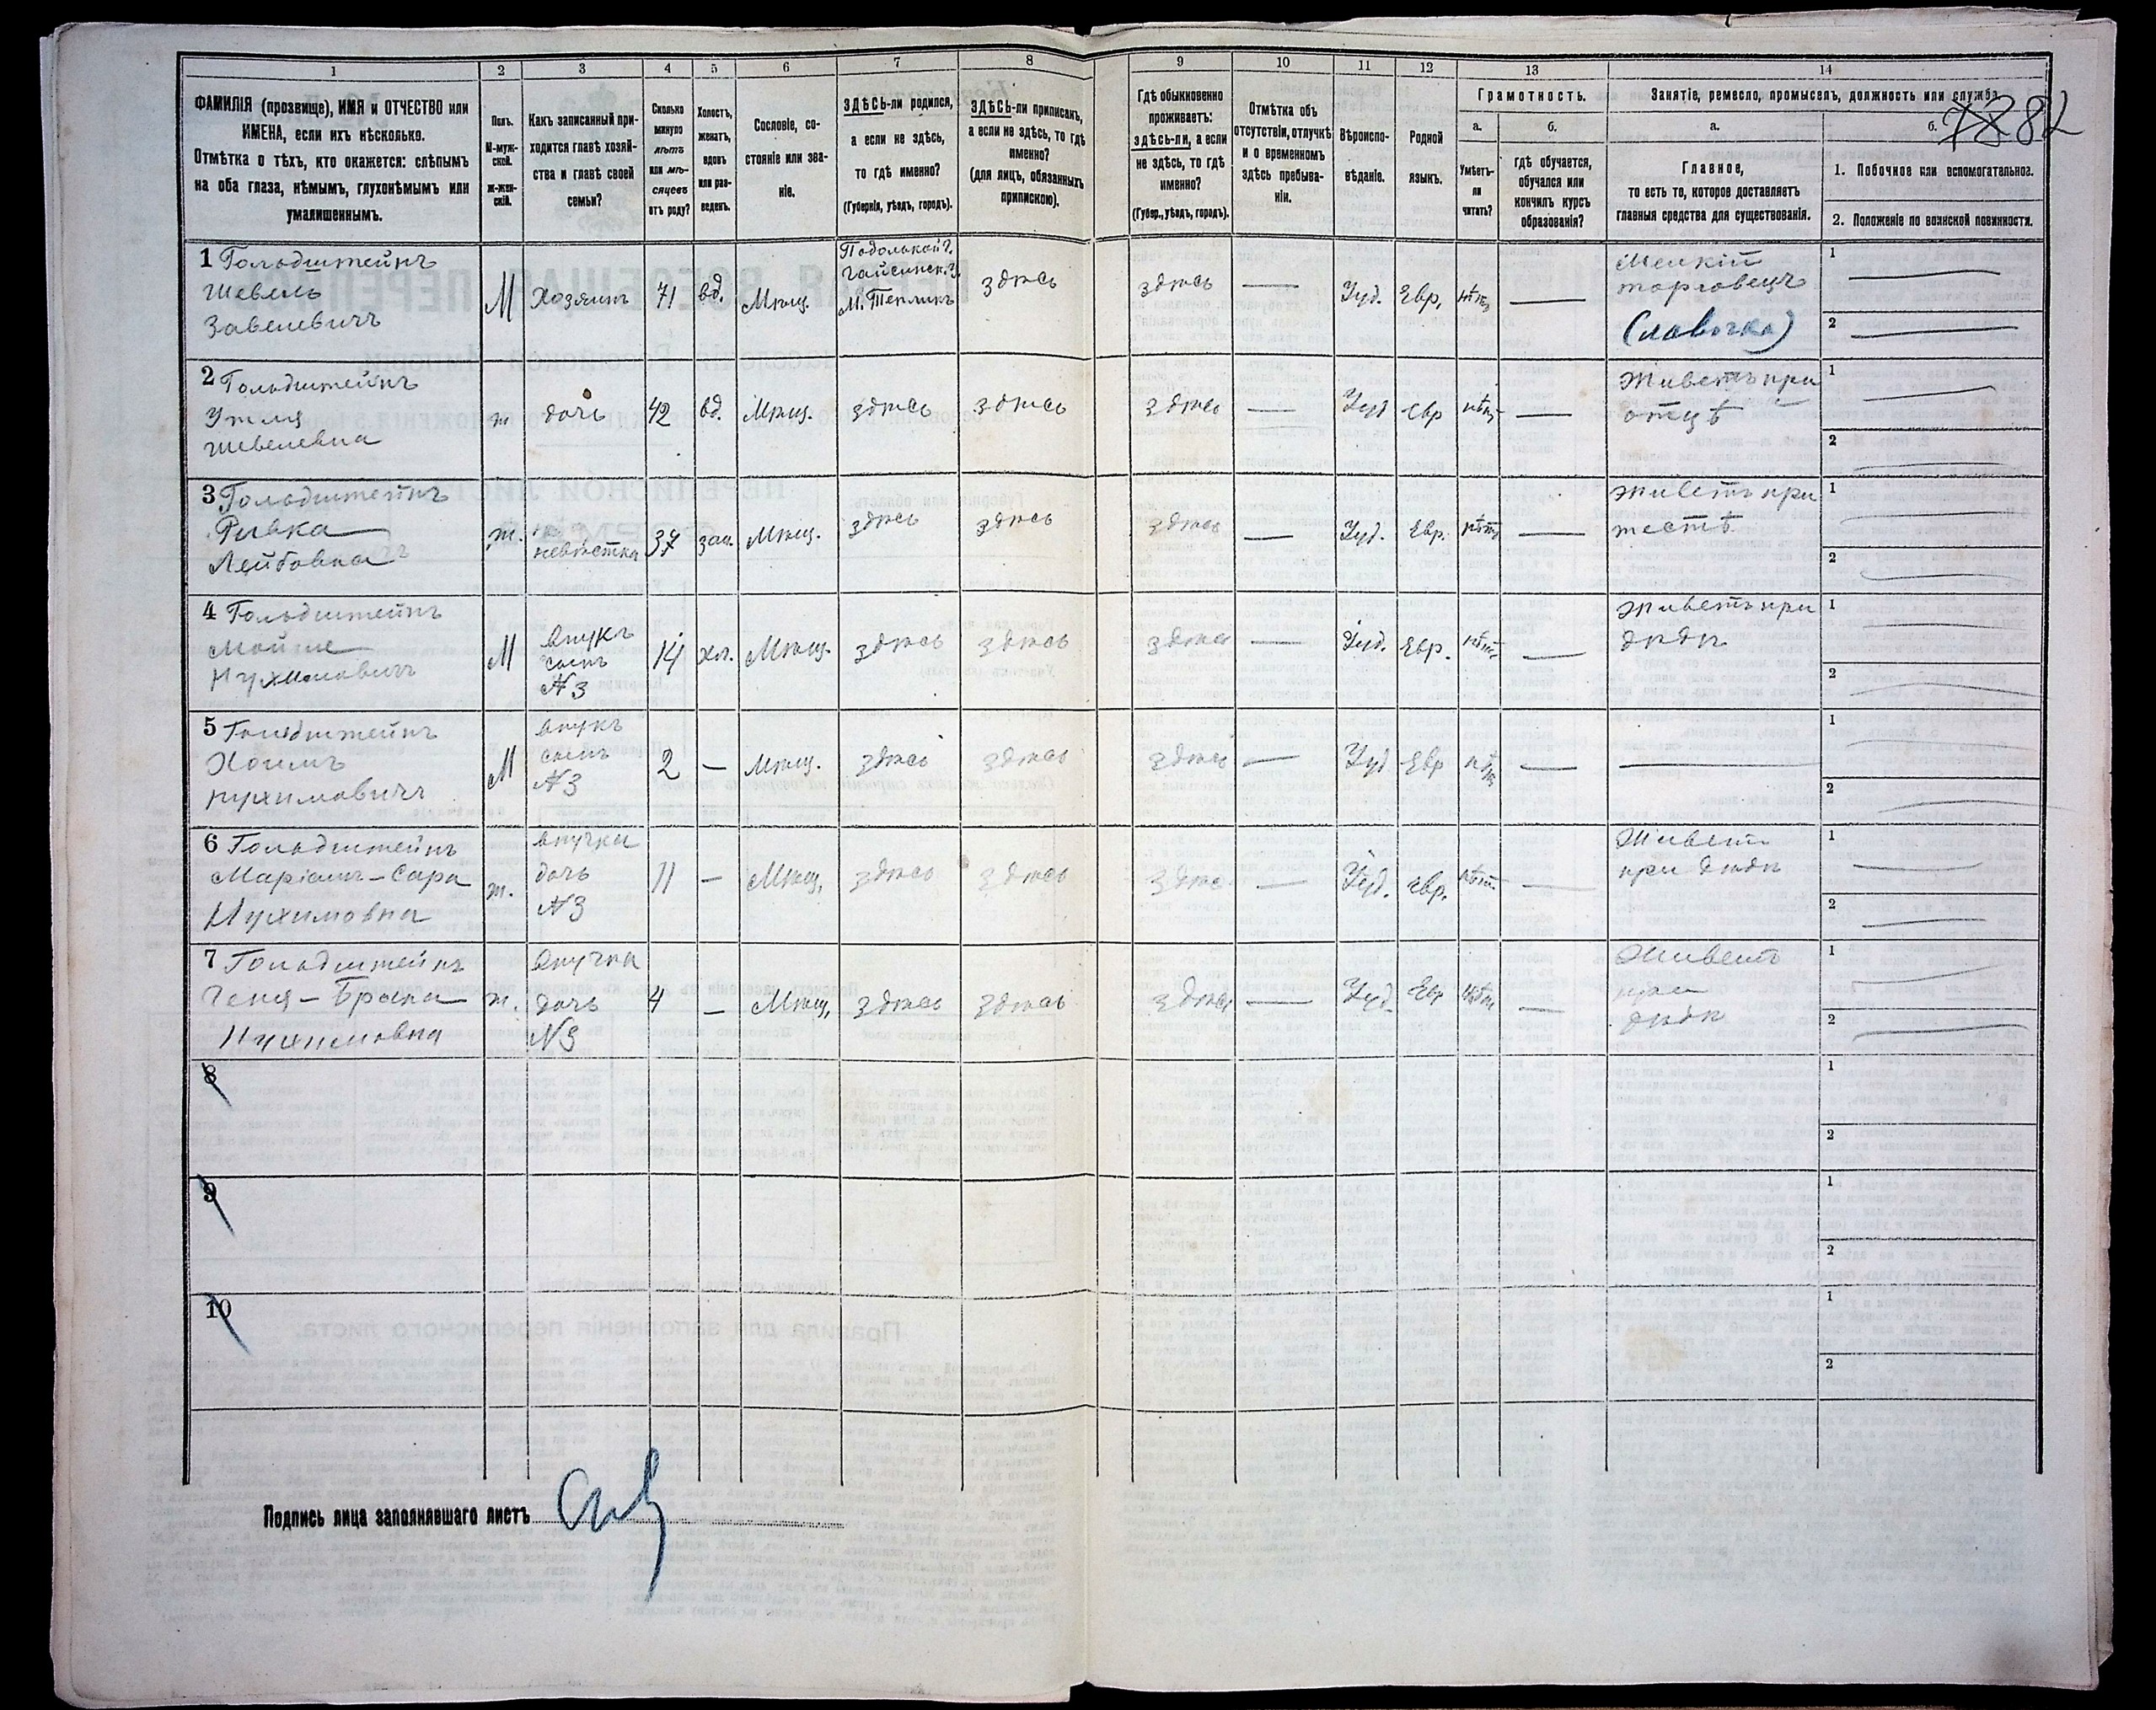 1 2 3 4 5 6 7 8 9 10 11 12 13 14
ФАМИЛІЯ (прозвище), ИМЯ и ОТЧЕСТВО или
ИМЕНА, если ихъ нѣсколько.
Отмѣтка о тѣхъ, кто окажется: слѣпымъ
на оба глаза, нѣмымъ, глухонѣмымъ или
умалишеннымъ.
Полъ.
М-муж-
ской.
ж-жен-
скій.
Какъ записанный при-
ходится главѣ хозяй-
ства и главѣ своей
семьи?
Сколько
минуло
лѣтъ
или мѣ-
сяцевъ
отъ роду?
Холостъ,
женатъ,
вдовъ
или раз-
веденъ.
Сословіе, со-
стояніе или зва-
ніе.
ЗДѢСЬ-ли родился,
а если не здѣсь,
то гдѣ именно?
(Губернія, уѣздъ, городъ).
ЗДѢСЬ-ли приписанъ,
а если не здѣсь, то гдѣ
именно?
(для лицъ, обязанныхъ
припискою).
Гдѣ обыкновенно
проживаетъ:
здѣсь-ли, а если
не здѣсь, то гдѣ
именно?
(Губер., уѣздъ, городъ).
Отмѣтка объ
отсутствіи, отлучкѣ
и о временномъ
здѣсь пребыва-
ніи.
Вѣроиспо-
вѣданіе.
Родной
языкъ.
Грамотность.
а.
Умѣетъ-
ли
читать?
б.
гдѣ обучается,
обучался или
кончилъ курсъ
образованія?
Занятіе, ремесло, промыселъ, должность или служба.
а.
Главное,
то есть то, которое доставляетъ
главныя средства для существованія.
б.
82
1. Побочное или вспомогательное.
2. Положеніе по воинской повинности.
1 Гольдштейнъ
Шевель
Завелевичъ
М
Хозяинъ
71
вд.
Мѣщ.
Подольской г.
Гайсинск. у.
М. Тепликъ
здѣсь
здѣсь
—
Іуд.
Евр.
нѣтъ
—
Мелкій
торговецъ
(лавочка)
1 —
2 —
2 Гольдштейнъ
Этля
Шевелевна
ж
дочь
42
вд.
Мѣщ.
здѣсь
здѣсь
здѣсь
—
Іуд
Евр
нѣтъ
—
Живетъ при
отцѣ
1 —
2 —
3 Гольдштейнъ
Ривка
Лейбовна
ж.
невѣстка
37
зам.
Мѣщ.
здѣсь
здѣсь
здѣсь
—
Іуд.
Евр.
нѣтъ
—
живетъ при
тестѣ
1 —
2 —
4 Гольдштейнъ
Мойше
Нухимовичъ
М
внукъ
сынъ
№3
14
хол.
Мѣщ.
здѣсь
здѣсь
здѣсь
—
Іуд.
Евр.
нѣтъ
—
живетъ при
дѣдѣ
1 —
2 —
5 Гольдштейнъ
Хоимъ
Нухимовичъ
М
внукъ
сынъ
№3
2
—
Мѣщ.
здѣсь
здѣсь
здѣсь
—
Іуд
Евр
нѣтъ
—
—
1 —
2 —
6 Гольдштейнъ
Маріамъ-Сара
Нухимовна
ж.
внучка
дочь
№3
11
—
Мѣщ.
здѣсь
здѣсь
здѣсь
—
Іуд.
Евр.
нѣтъ
—
Живетъ
при дѣдѣ
1 —
2 —
7 Гольдштейнъ
Геня-Брана
Нухимовна
ж.
внучка
дочь
№3
4
—
Мѣщ.
здѣсь
здѣсь
здѣсь
—
Іуд.
Евр
нѣтъ
—
Живетъ
при
дѣдѣ
1 —
2 —
8
1
2
9
1
2
10
1
2
Подпись лица заполнявшаго листъ